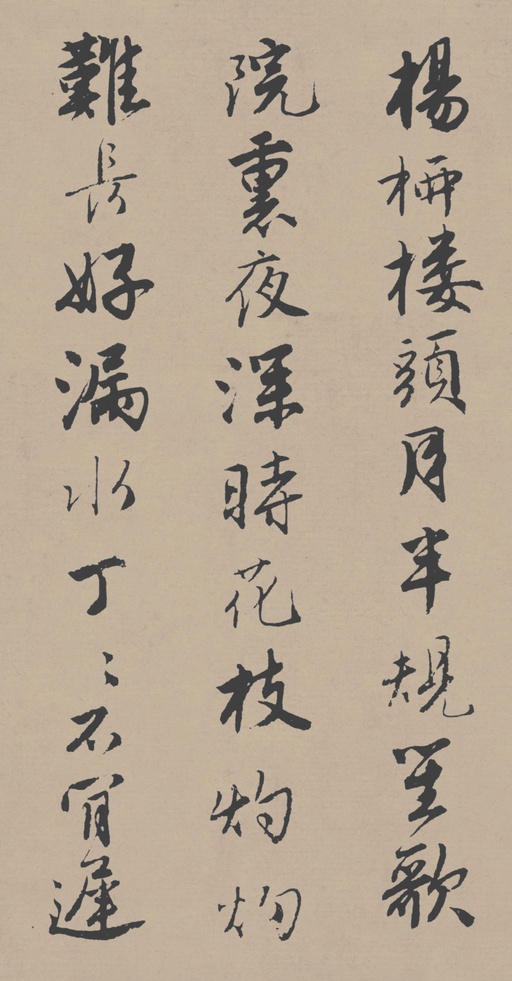 楊桺楼頭月半規笙歌
院裏夜深時花枝灼灼
難長好漏水丁〻不肯遲